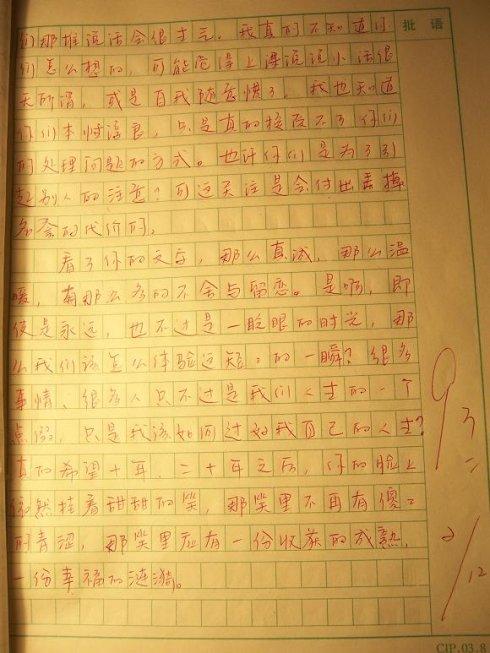 们那样说话会很生气。我真的不知道你 批语
们怎么想的，可能觉得上课说说小话很
无所谓，或是自我随意惯了，我也知道
你们本性淳良，只是真的接受不了你们
的处理问题的方式。也许你们是为了引
起别人的注意？可这关注是会付出丢掉
名誉的代价的。
看了你的文字，那么真诚，那么温
暖，有那么多的不舍与留恋。是啊，即
使是永远，也不过是一眨眼的时光，那
么我们该怎么体验这短短的一瞬？很多
事情、很多人只不过是我们人生的一个
点缀，只是我该如何过好我自己的人生？
真的希望十年、二十年之后，你的脸上
依然挂着甜甜的笑，那笑里不再有傻傻
的青涩，那笑里应有一份收获的成熟，
一份幸福的涟漪。
93
2/12
CJP.03.8